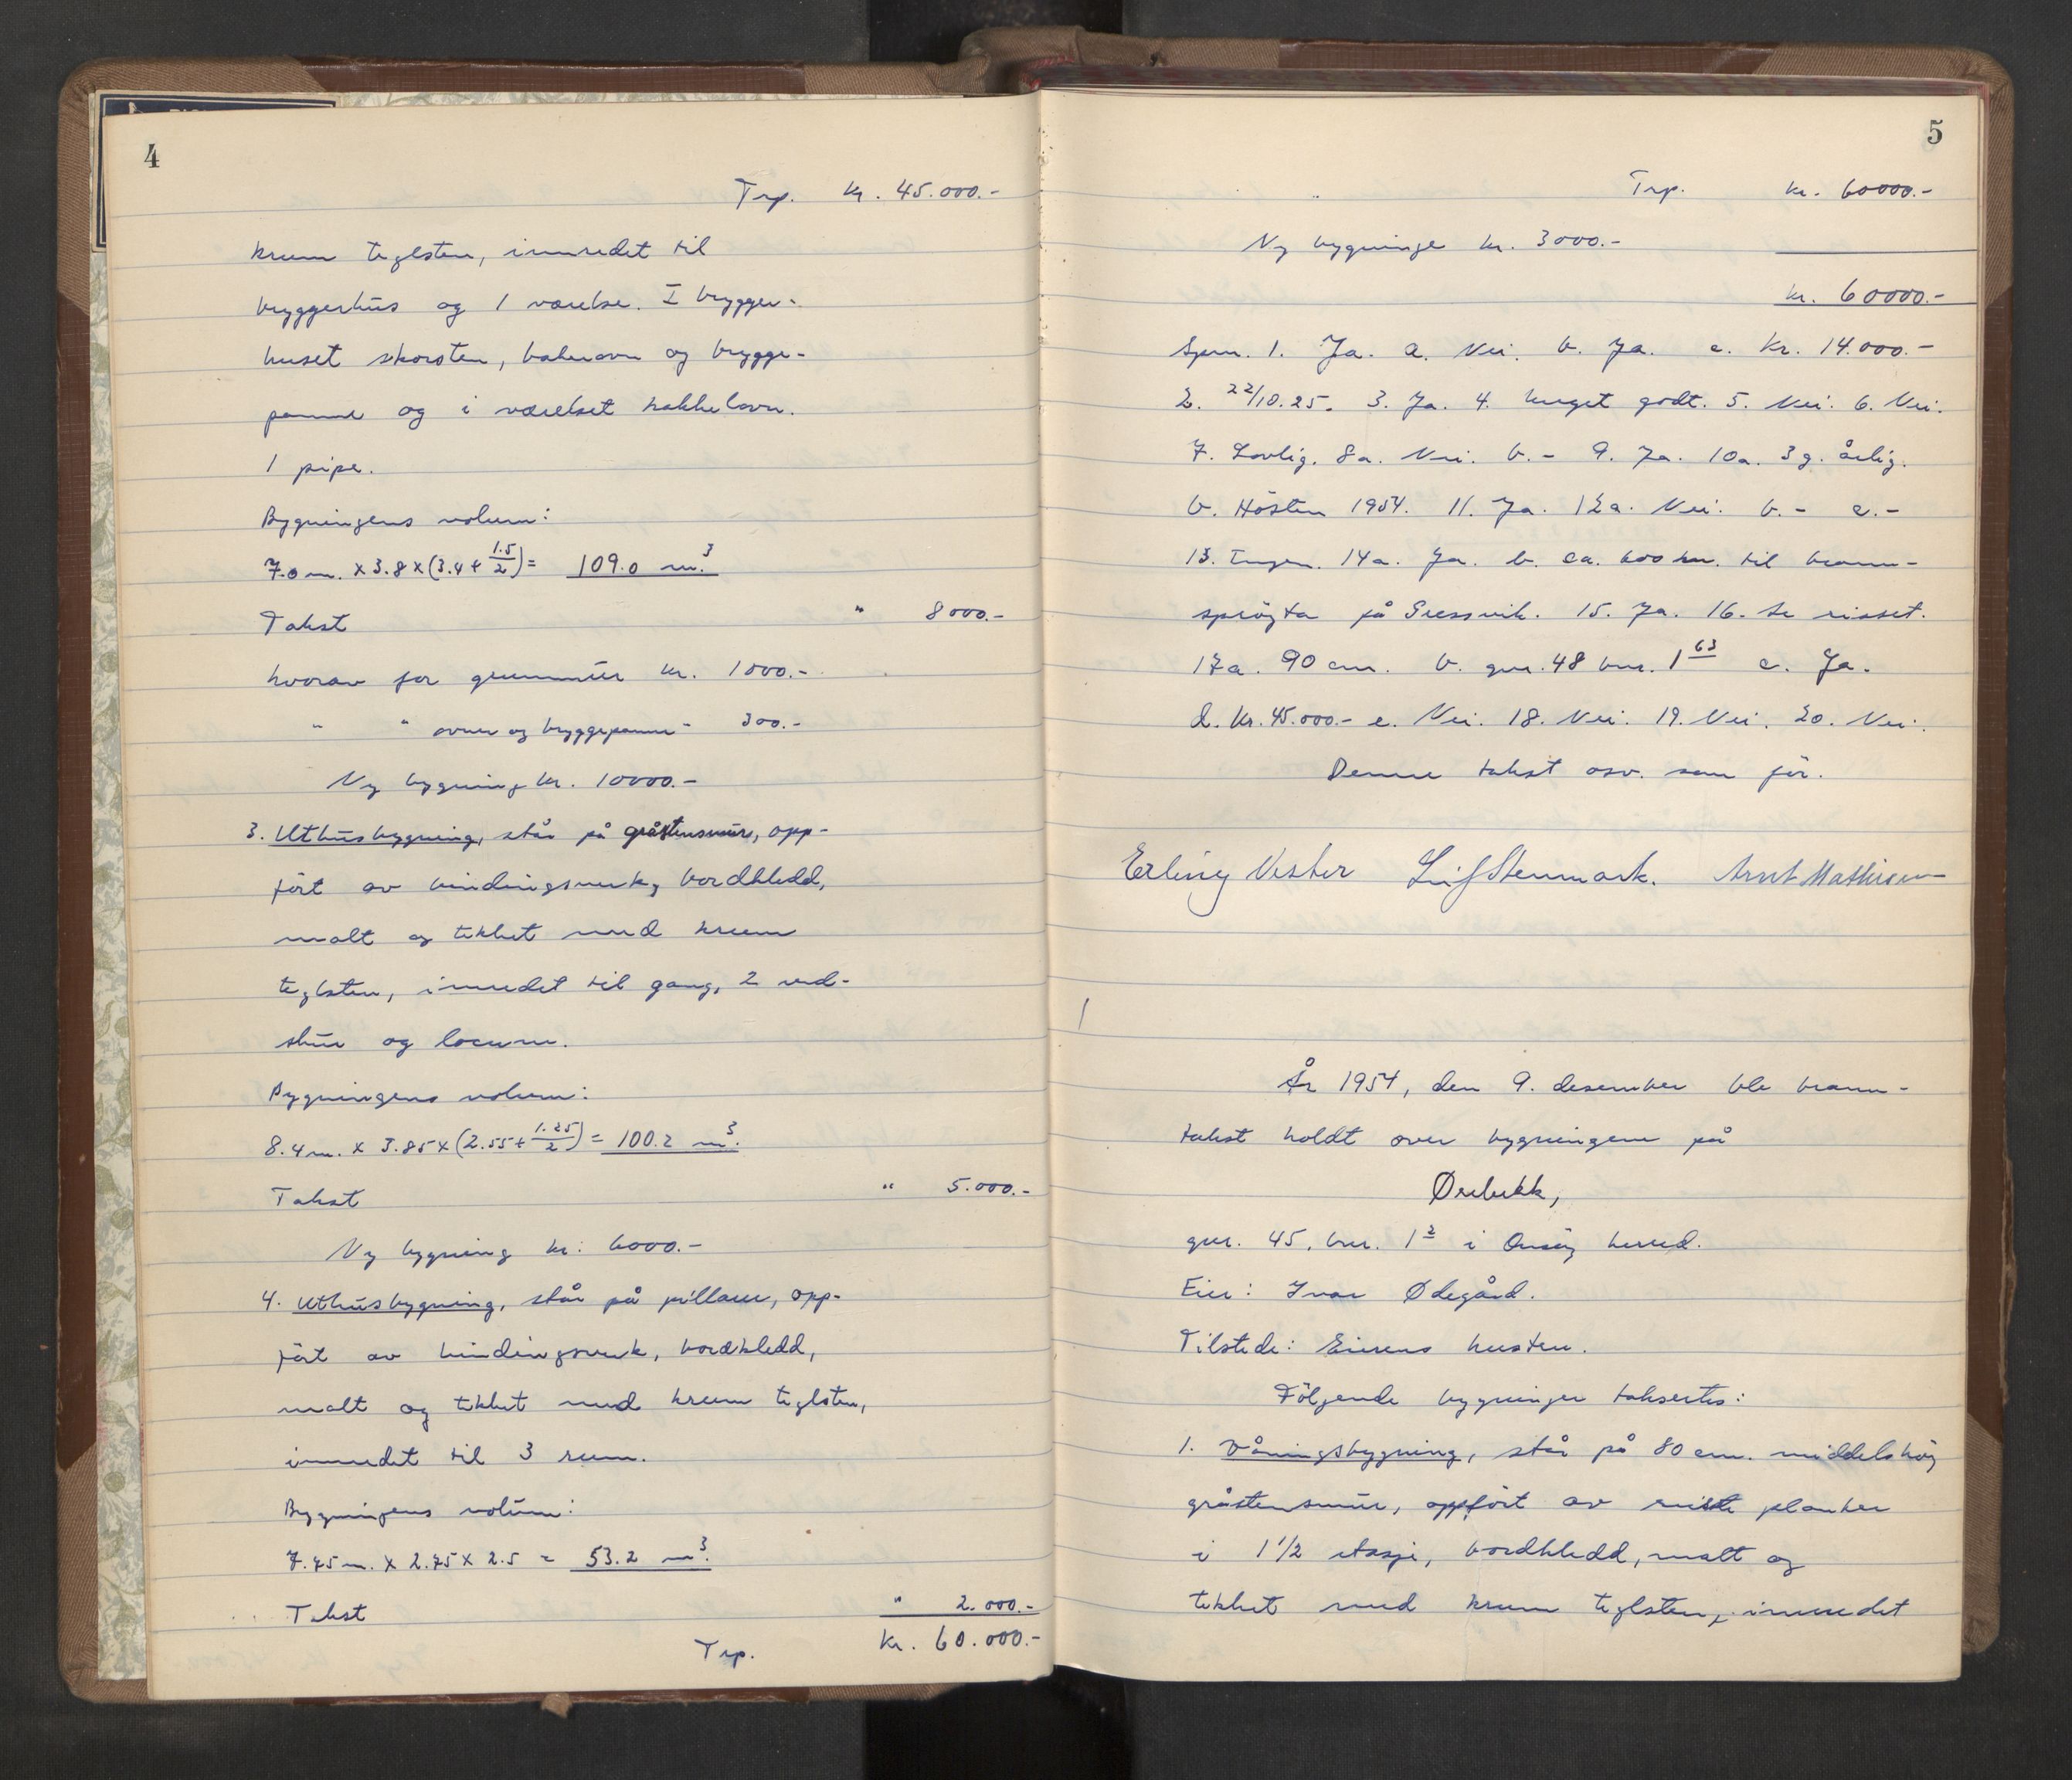 4
Trp. Kr. 45.000.-
krum teglsten, innredet til
bryggerhus og 1 værelse. I brygger-
huset skorsten, bakerovn og brygge-
panne og i værelset kakkelovn.
1 pipe.
Bygningens volum:
7.0 m. x 3.8 x (3.4 + 1.5/2) = 109.0 m³.
Takst " 8000.-
hvorav for grunnmur kr. 1000.-
" " ovner og bryggepanne " 300.-
Ny bygning kr. 10000.-
3. Uthusbygning, står på gråstensmur, opp-
ført av bindingsverk, bordkledd,
malt og tekket med krum
teglsten, innredet til gang, 2 ved-
skur og locum.
Bygningens volum:
8.4 m. x 3.85 x (2.55 + 1.25/2) = 100.2 m³.
Takst " 5.000.-
Ny bygning kr. 6000.-
4. Uthusbygning, står på pillarer, opp-
ført av bindingsverk, bordkledd,
malt og tekket med krum teglsten,
innredet til 3 rum.
Bygningens volum:
7.75 m. x 2.75 x 2.5 = 53.2 m³.
Takst " 2.000.-
Trp. Kr. 60.000.-
5
Trp. kr. 60000.-
Ny bygninge kr. 3000.-
kr. 60000.-
Spm. 1. Ja. a. Nei. b. Ja. c. Kr. 14.000.-
2. 22/10.25. 3. Ja. 4. Meget godt. 5. Nei. 6. Nei.
7. Lovlig. 8a. Nei. b. - 9. Ja. 10a. 3 g. årlig.
b. Hösten 1954. 11. Ja. 12a. Nei. b. - c. -
13. Ingen. 14a. Ja. b. ca. 600 m. til brann-
spröyta på Gressvik. 15. Ja. 16. Se risset.
17a. 90 cm. b. gnr. 48 bnr. 1 63 c. Ja.
d. Kr. 45.000.- e. Nei. 18. Nei. 19. Nei. 20. Nei.
Denne takst osv. som för.
Erling Vester Leif Stenmark. Arnt Mathisen
År 1954, den 9. desember ble brann-
takst holdt over bygningene på
Ørebekk,
gnr. 45, bnr. 1 2 i Onsöy herred.
Eier: Ivar Ødegård.
Tilstede: Eierens hustru.
Fölgende bygninger taksertes:
1. Våningsbygning, står på 80 cm. middelshöy
gråstensmur, oppfört av reiste planker
i 1 1/2 etasje, bordkledd, malt og
tekket med krum teglsten, innredet